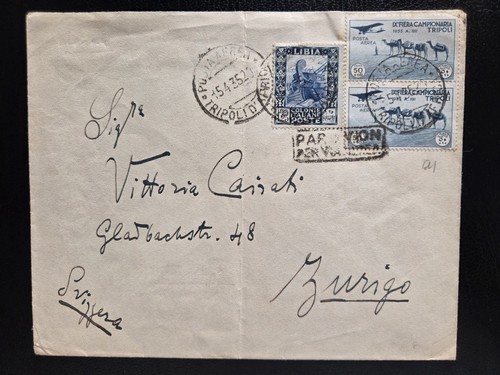 POSTA AEREA
5.4.35
TRIPOLI D'
LIBIA
COLONIE ITALIANE
POSTE
IX FIERA CAMPIONARIA
TRIPOLI
1935 A. XIII
POSTA
AEREA
50
IX FIERA CAMPIONARIA
TRIPOLI
1935 A. XIII
POSTA
AEREA
50
PAR AVION
PER VIA AEREA
Sig.ra
Vittoria Cairati
Gladbachstr. 48
Zurigo
Svizzera